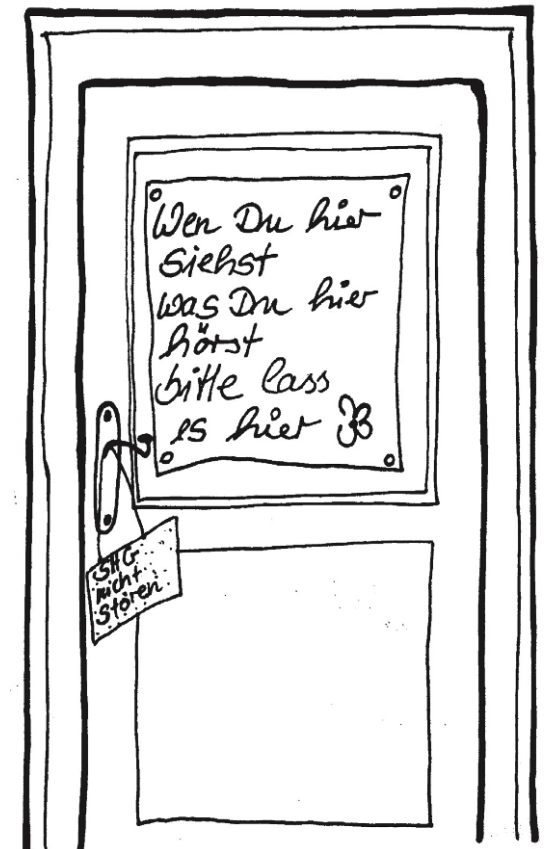 Wen Du hier
siehst
was Du hier
hörst
bitte lass
es hier
SHG
nicht
stören